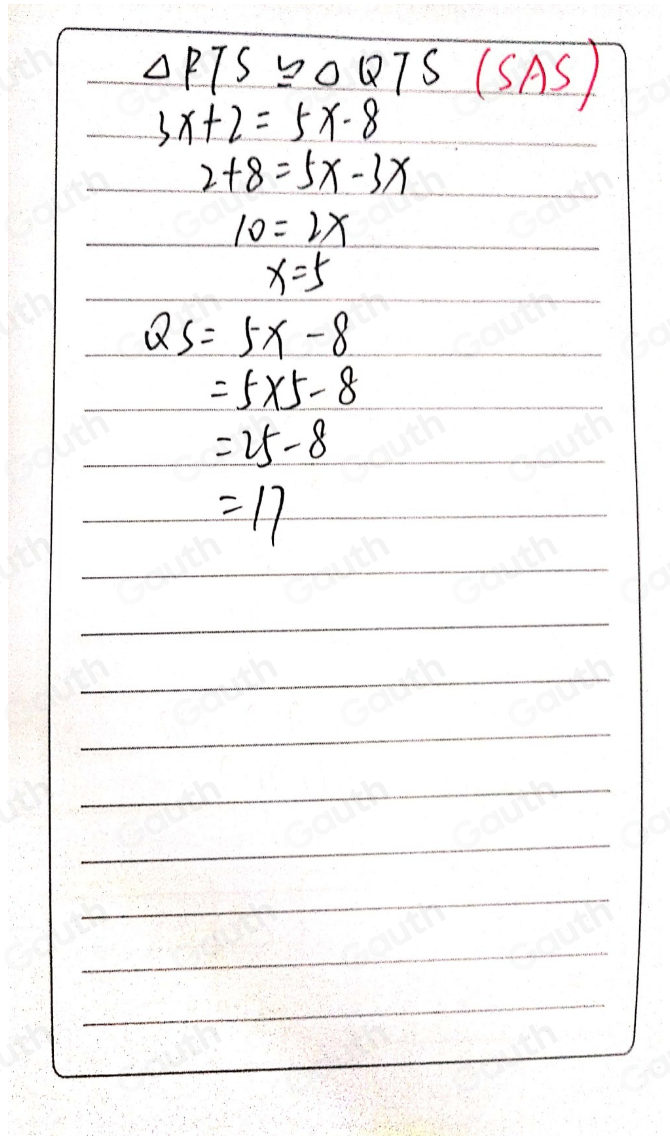 △PTS ≌ △QTS (SAS)
3x+2=5x-8
2+8=5x-3x
10=2x
x=5
QS=5x-8
=5×5-8
=25-8
=17